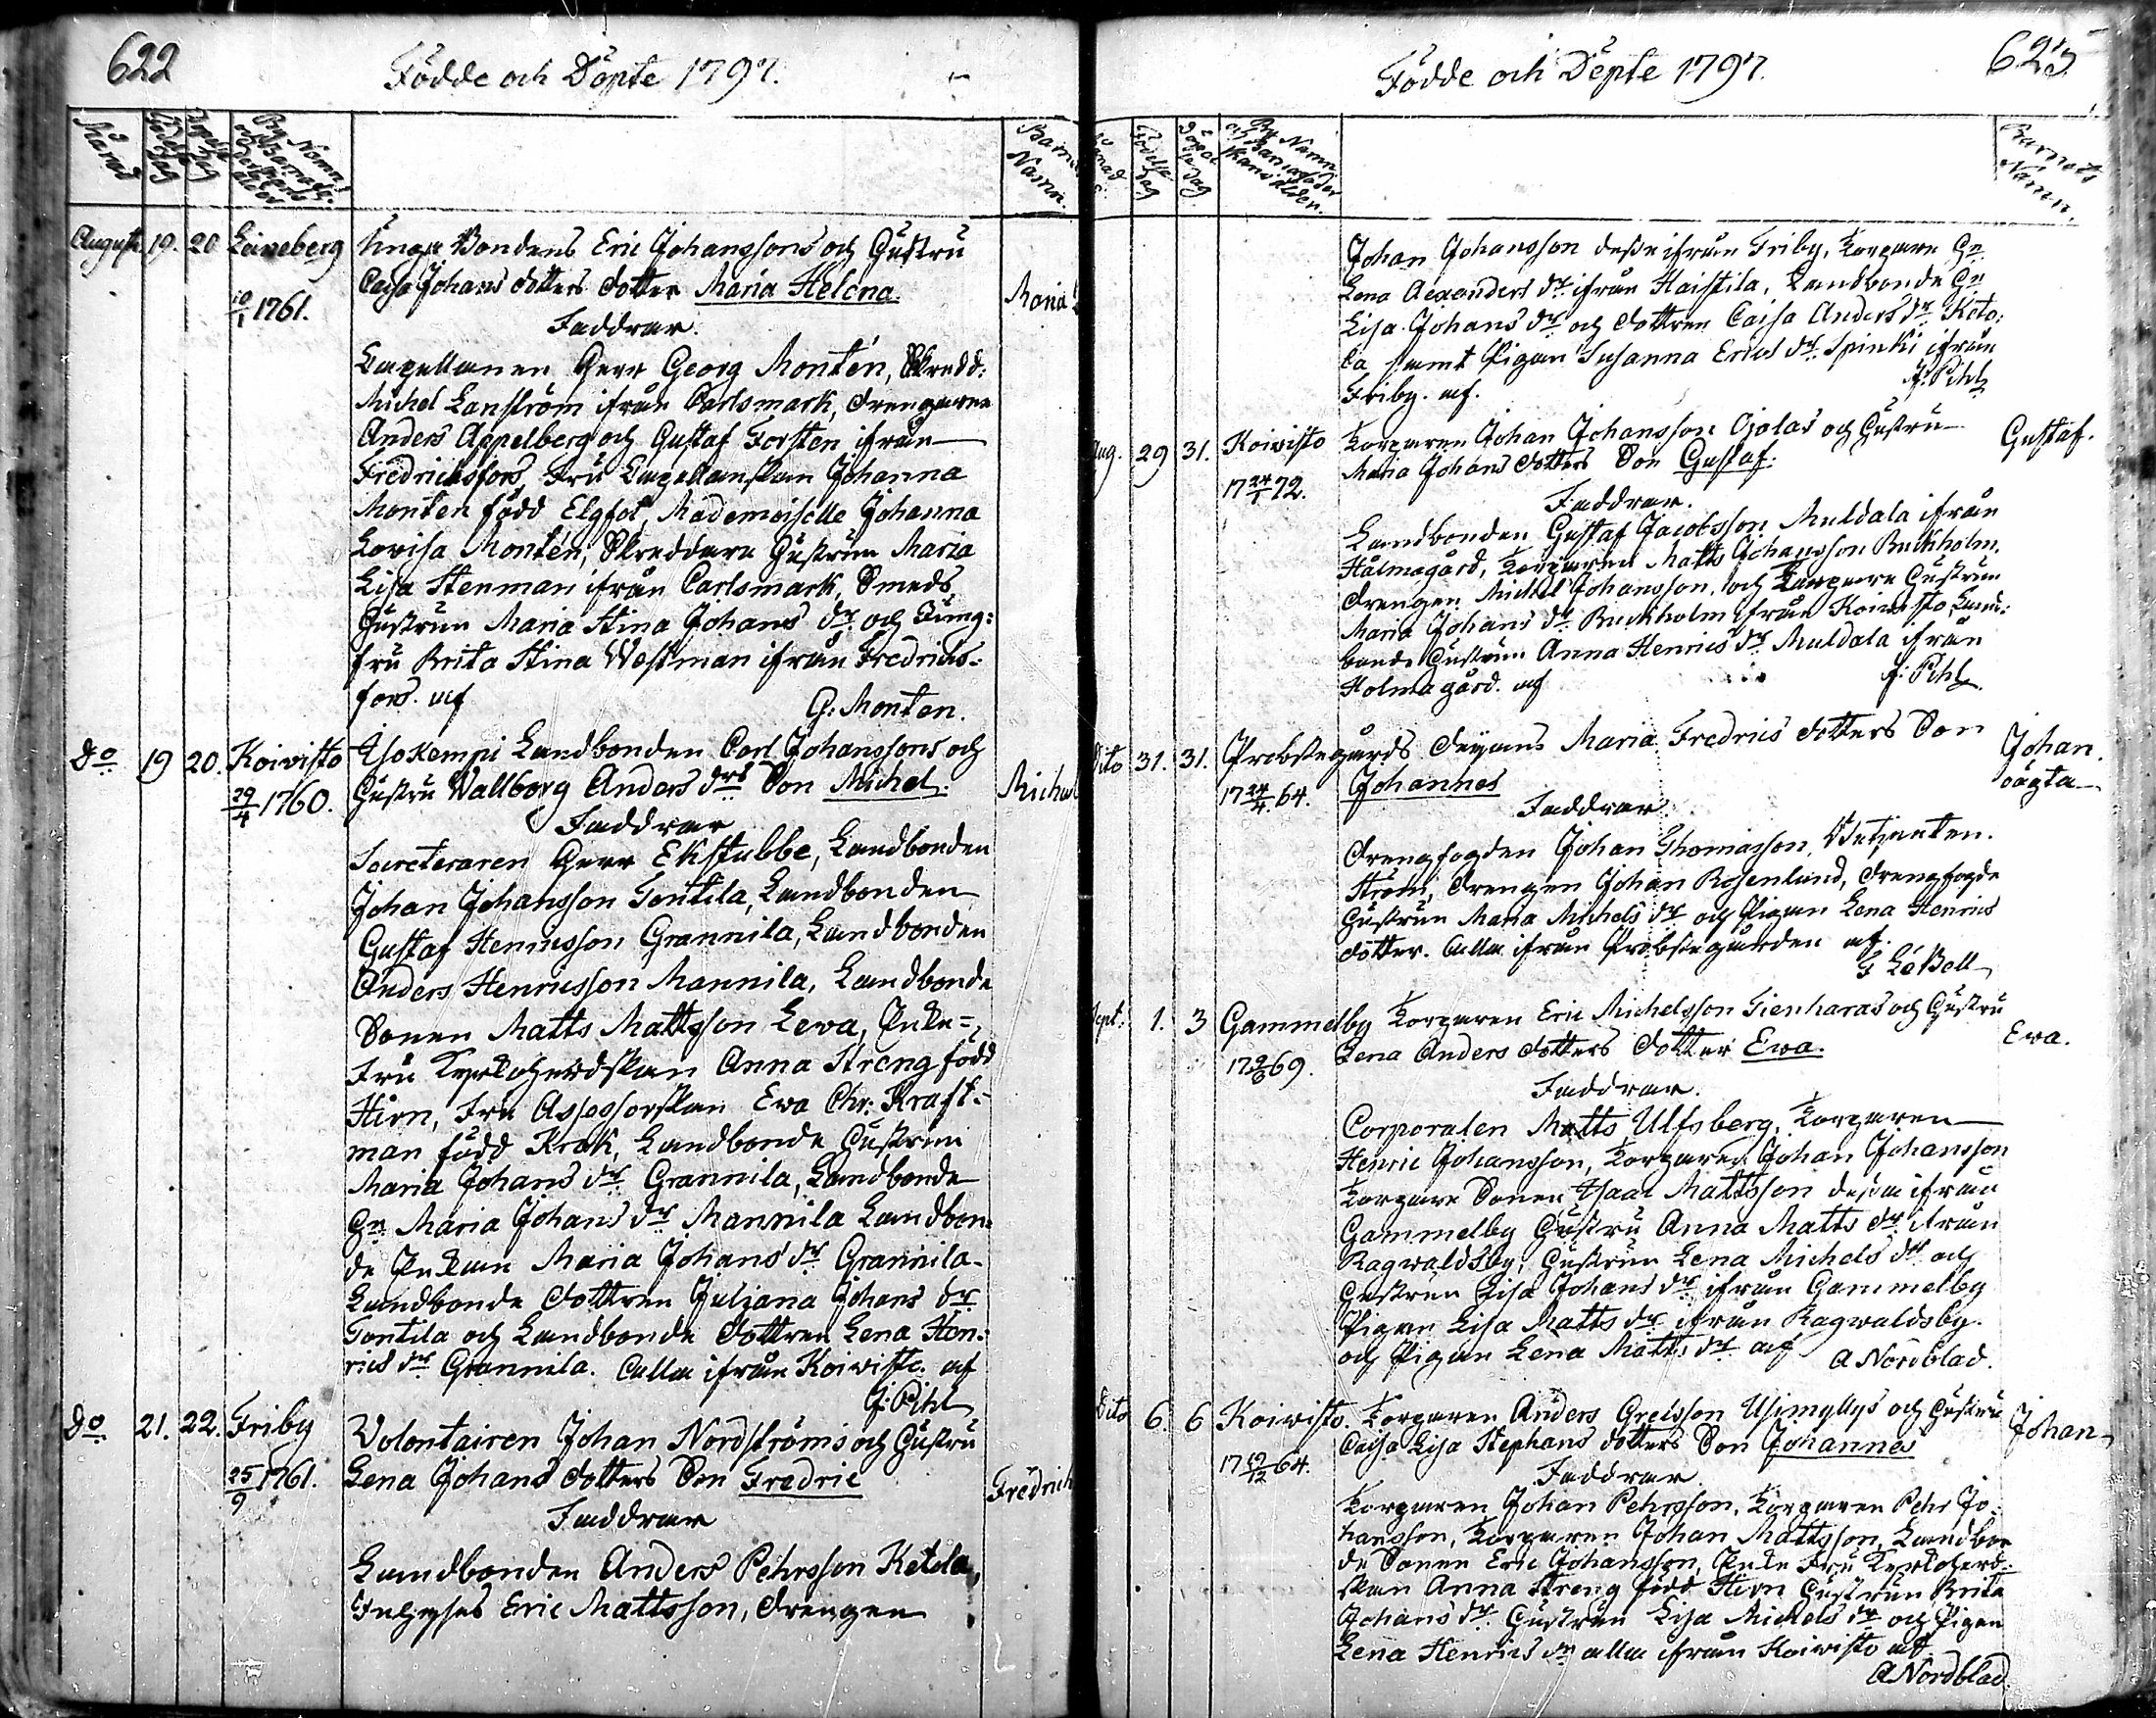 622
Födde och Döpte 1797.
Månad
Födelse Dag
Döpelse Dag
Barnets Namn.
Augusti 19. 20 Laineberg Unga Bondens Eric Johanssons och Hustru
Caisa Johans dotters dotter Maria Helena. Maria
10/1 1761.
Faddrar.
Capellanen Herr Georg Montén, Skredd:
Michel Lanström ifrån Carlsmark, drengarne
Anders Appelberg och Gustaf Forsten ifrån
Fredricksfors, Fru Capellanskan Johanna
Montén född Elgfot, Mademoiselle Johanna
Lovisa Montén, Skreddare Hustrun Maria
Lisa Stenman ifrån Carlsmark, Smeds
Hustrun Maria Stina Johans dr och Jung:
fru Brita Stina Westman ifrån Fredrics-
fors. af G: Monten.
Do 19 20. Koivisto Isokempi Landbonden Carl Johanssons och
29/4 1760. Hustru Wallborg Anders drs Son Michel. Michel
Faddrar
Secreteraren Herr Ekstubbe, Landbonden
Johan Johansson Tontila, Landbonden
Gustaf Henricsson Grannila, Landbonden
Anders Henricsson Mannila, Landbonde
Sonen Matts Mattsson Lewa, Enke-
Fru Kyrkoherdskan Anna Streng född
Hirn, Fru Assessorskan Ewa Chr: Kraft-
man född Krok, Landbonde Hustrun
Maria Johans dr Grannila, Landbonde
Hn Maria Johans dr Mannila Landbon-
de Enkan Maria Johans dr Grannila-
Landbonde dottren Juliana Johans dr
Tontila och Landbonde dottren Lena Hen-
rics dr Grannila. Alla ifrån Koivisto. af
J: Pihl
Do 21. 22. Friby Volontairen Johan Nordströms och Hustru
25/9 1761. Lena Johans dotters Son Fredric Fredrich
Faddrar
Landbonden Anders Pehrsson Ketola,
Inhyses Eric Mattsson, drengen
623
Födde och Döpte 1797.
Födelse dag
Döpelse dag
Barnets Namn.
Johan Johansson desse ifrån Friby, Torpare Hn
Lena Alexanders dr ifrån Haistila, Landbonde Hn
Lisa Johans dr och dottren Caisa Anders dr Keto:
la samt Pigan Susanna Erics dr Spinki ifrån
Friby. af. J: Pihl
Aug. 29 31. Koivisto Torparen Johan Johansson Ojalas och Hustru Gustaf.
17 24/1 72. Maria Johans dotters Son Gustaf.
Faddrar.
Landbonden Gustaf Jacobsson Muldala ifrån
Holmagård, Torparen Matts Johansson Buckholm,
drengen Michel Johansson, och Torpare Hustrun
Maria Johans dr Buckholm ifrån Koivisto Land:
bonde Hustrun Anna Henrics dr Muldala ifrån
Holmagård. af J: Pihl.
Dito 31. 31. Probstegårds deijans Maria Fredrics dotters Son Johan.
17 24/4 64. Johannes oägta
Faddrar.
drengfogden Johan Thomasson,
Ström, drengen Johan Rosenlund, drengfogde
Hustrun Maria Michels dr och Pigan Lena Henrics
dotter. Alla ifrån Probstegården af.
G LéBell
Sept: 1. 3 Gammelby Torparen Eric Michelsson Tienharas och Hustru
Lena Anders dotters dotter Ewa. Ewa.
Faddrar.
Corporalen Matts Ulfsberg, Torparen
Henric Johansson, Torparen Johan Johansson
Torpare Sonen Isaac Mattsson dessa ifrån
Gammelby Hustru Anna Matts dr ifrån
Ragwaldsby, Hustrun Lena Michels dr och
Hustrun Lisa Johans dr ifrån Gammelby
Pigan Lisa Matts dr ifrån Ragwaldsby.
och Pigan Lena Matts dr af A Nordblad.
Dito 6. 6 Koivisto. Torparen Anders Grelsson Usimyllys och Hustru Johan
Caisa Lisa Stephans dotters Son Johannes
Faddrar
Torparen Johan Pehrsson, Torparen Pehr Jo-
hansson, Torparen Johan Mattsson, Landbon
de Sonen Eric Johansson, Enke Fru Kyrkoherd-
skan Anna Streng född Hirn Hustrun Brita
Johans dr Hustrun Lisa Michels dr och Pigan
Lena Henrics dr alla ifrån Koivisto af
A Nordblad.